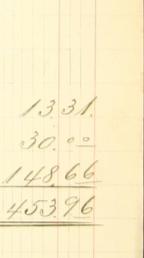 13.31.
30.00
148.66
453.96